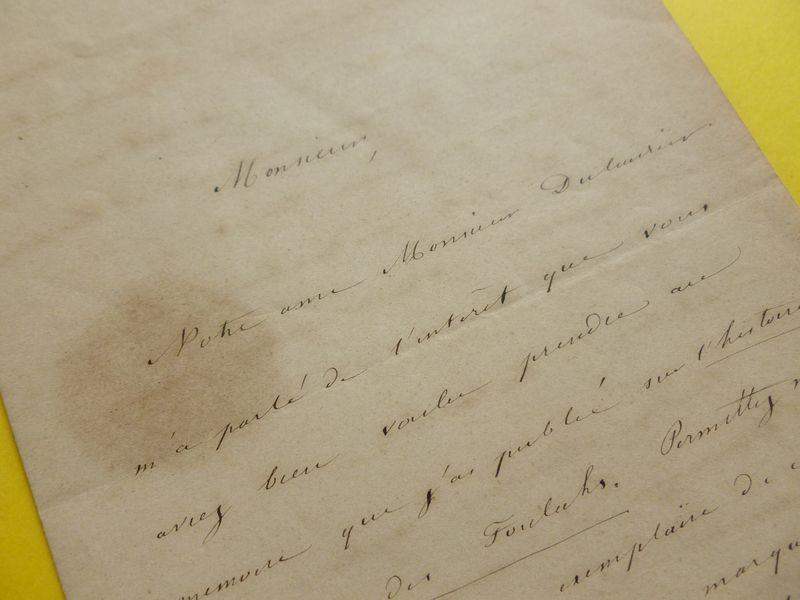 Monsieur,
Notre ami Monsieur Dulaurier
m'a parlé de l'intérêt que vous
aviez bien voulu prendre au
mémoire que j'ai publié sur l'histoire
des Foulahs. Permettez
exemplaire de
marqu